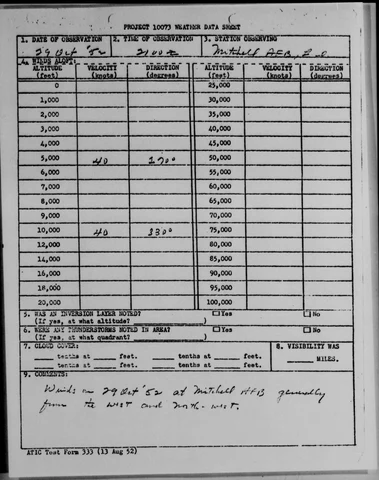 PROJECT 10073 WEATHER DATA SHEET
1. DATE OF OBSERVATION 2. TIME OF OBSERVATION 3. STATION OBSERVING
29 Oct '52 2100 Z Mitchell AFB
4. WINDS ALOFT:
ALTITUDE VELOCITY DIRECTION ALTITUDE VELOCITY DIRECTION
(feet) (knots) (degrees) (feet) (knots) (degrees)
0 25,000
1,000 30,000
2,000 35,000
3,000 40,000
4,000 45,000
5,000 40 270° 50,000
6,000 55,000
7,000 60,000
8,000 65,000
9,000 70,000
10,000 40 330° 75,000
12,000 80,000
14,000 85,000
16,000 90,000
18,000 95,000
20,000 100,000
5. WAS AN INVERSION LAYER NOTED? Yes No
(If yes, at what altitude?
6. WERE ANY THUNDERSTORMS NOTED IN AREA? Yes No
(If yes, at what quadrant?
7. CLOUD COVER: 8. VISIBILITY WAS
tenths at feet. tenths at feet.
tenths at feet. tenths at feet. MILES.
9. COMMENTS:
Winds on 29 Oct '52 at Mitchell AFB generally
from the west and north-west.
ATIC Test Form 333 (13 Aug 52)